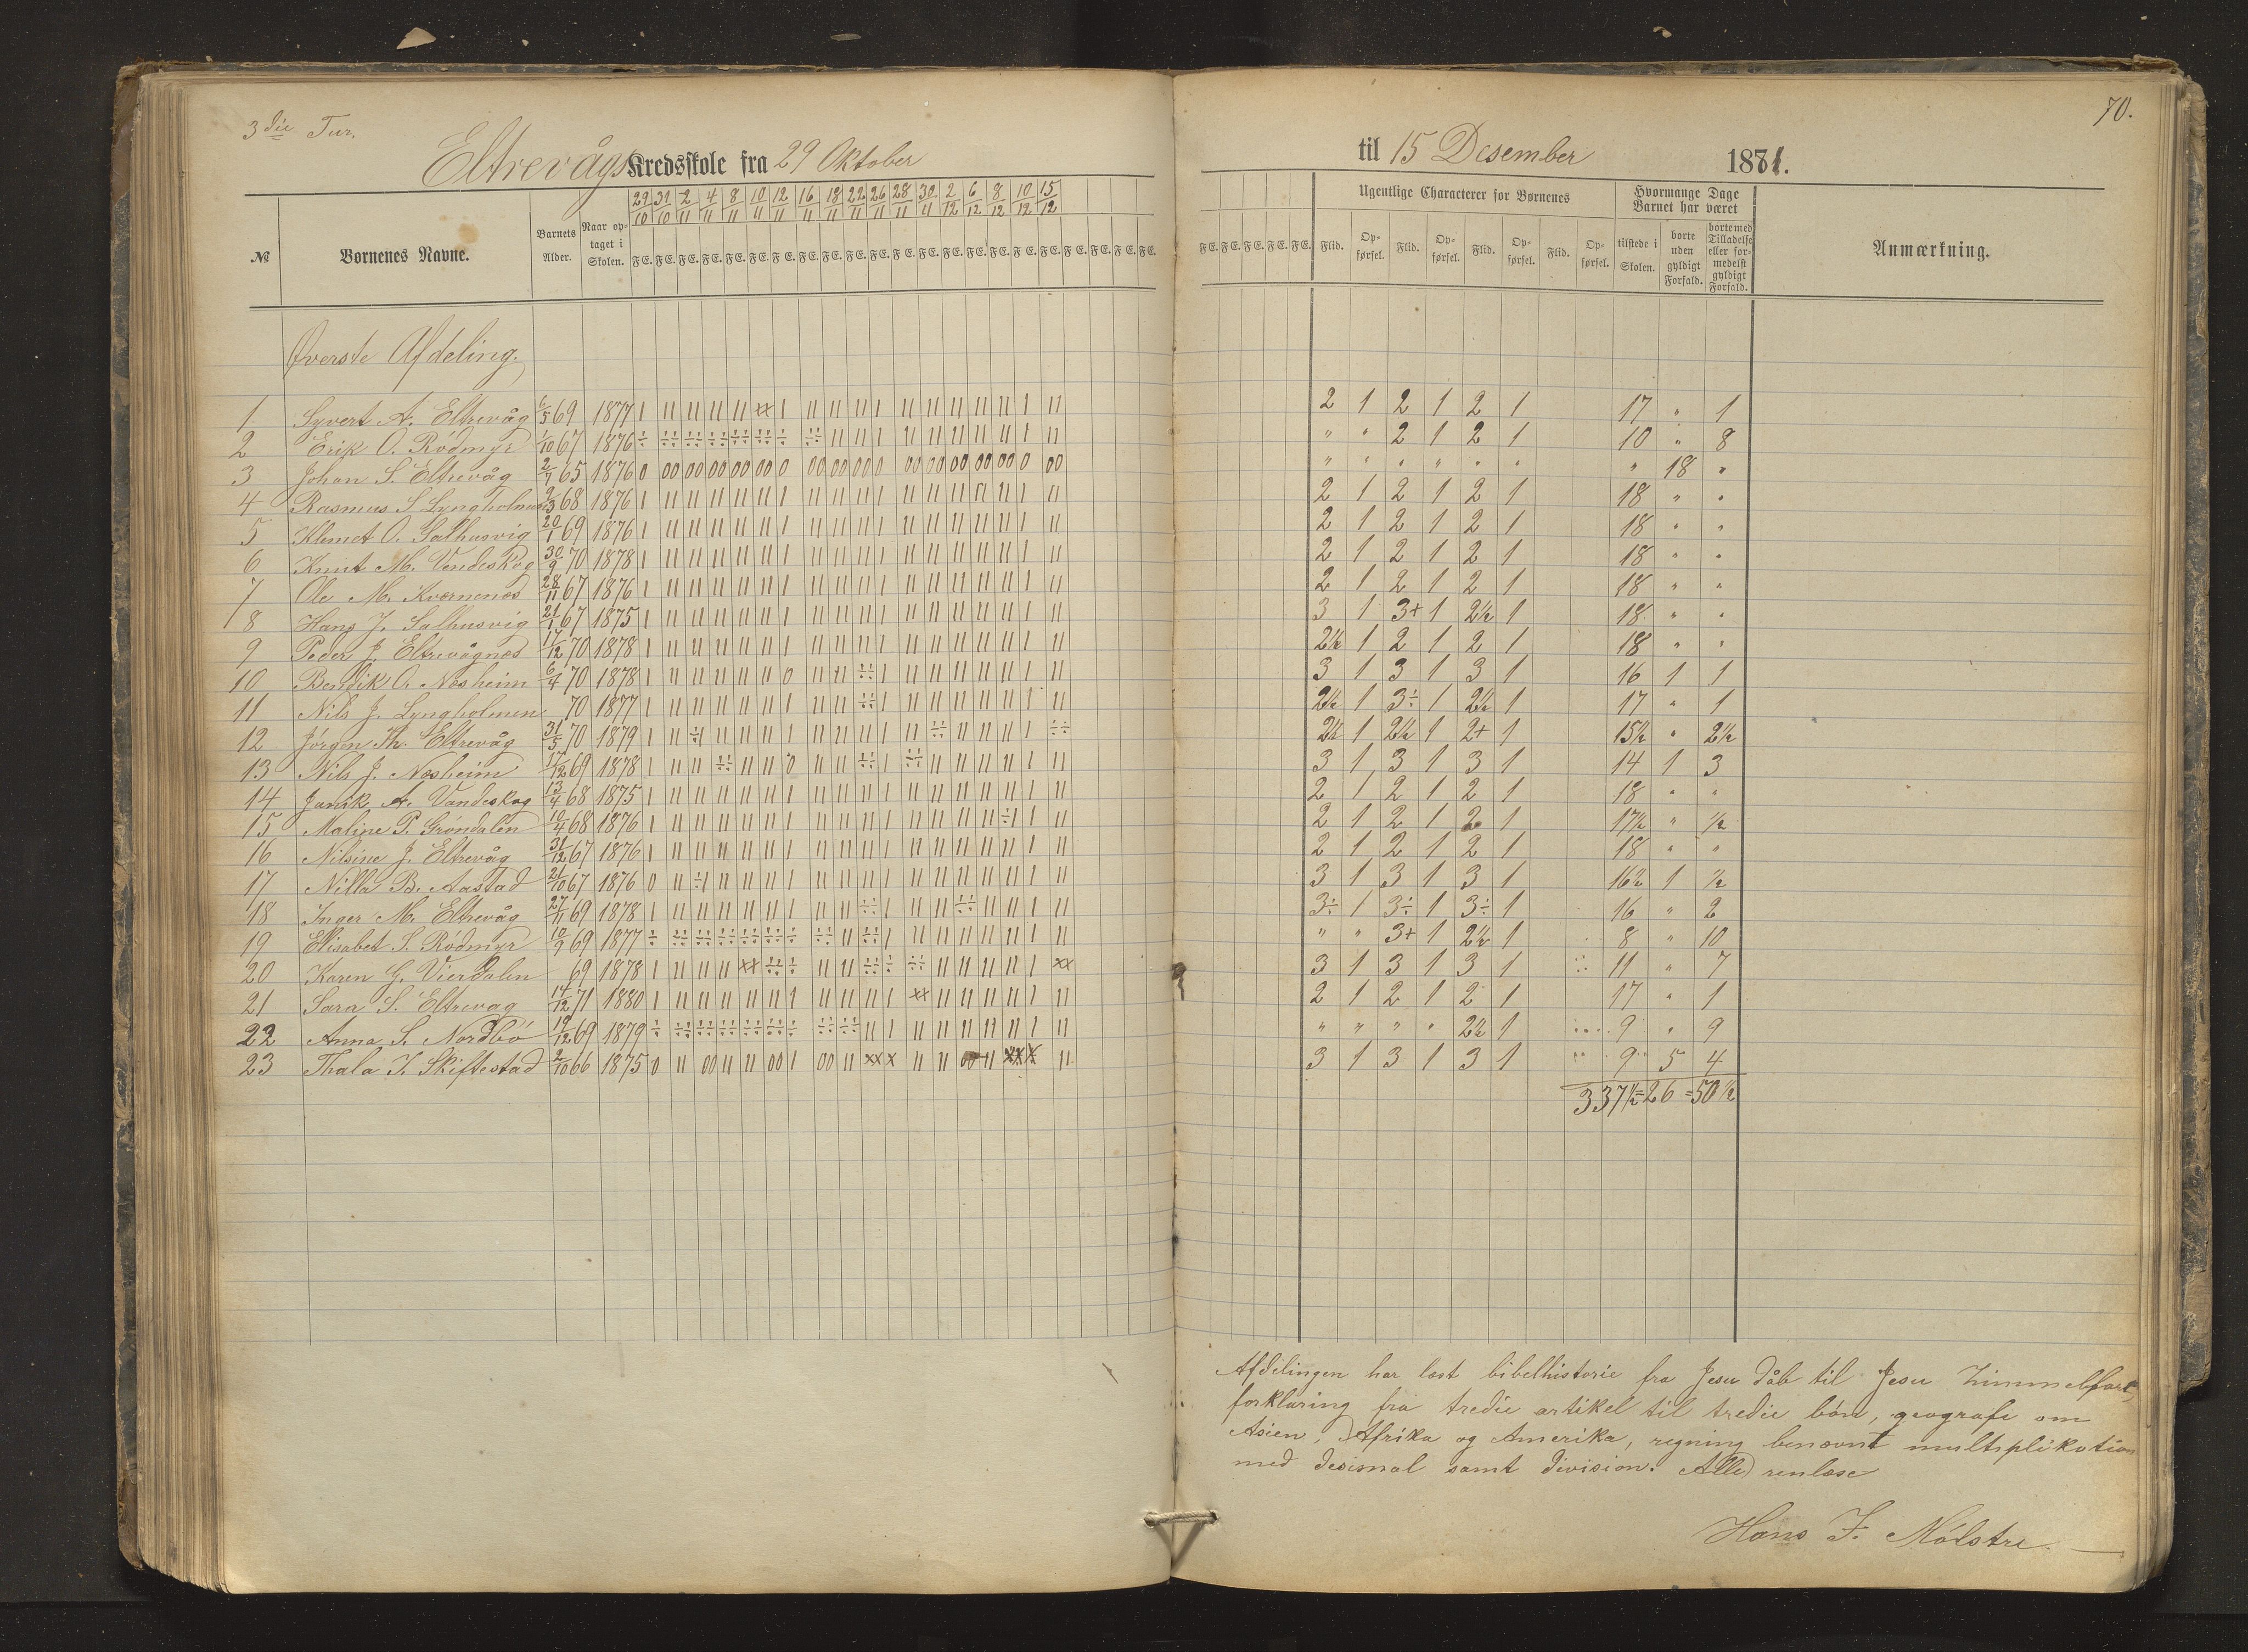 3die Tur.
70.
Eltrevågs Kredsskole fra 29 Oktober
til 15 Desember 1881.
№ Børnenes Navne. Barnets Alder. Naar optaget i Skolen.
29/10 31/10 2/11 4/11 8/11 10/11 12/11 16/11 18/11 22/11 26/11 28/11 30/11 2/12 6/12 8/12 10/12 15/12
F.E. F.E. F.E. F.E. F.E. F.E. F.E. F.E. F.E. F.E. F.E. F.E. F.E. F.E. F.E. F.E. F.E. F.E. F.E. F.E. F.E. F.E.
F.E. F.E. F.E. F.E. F.E.
Ugentlige Characterer for Børnenes
Flid. Opførsel. Flid. Opførsel. Flid. Opførsel. Flid. Opførsel.
Hvormange Dage Barnet har været
tilstede i Skolen. borte uden gyldigt Forfald. borte med Tilladelse eller formedelst gyldigt Forfald.
Anmærkning.
Øverste Afdeling.
1 Syvert A. Eltrevåg 6/5 69 1877 2 1 2 1 2 1 17 " 1
2 Erik O. Rødmyr 1/10 67 1876 " " 2 1 2 1 10 " 8
3 Johan S. Eltrevåg 2/7 65 1876 " " " " " " " 18 "
4 Rasmus S Lyngholmen 2/3 68 1876 2 1 2 1 2 1 18 " "
5 Klemet O. Salhusvig 20/1 69 1876 2 1 2 1 2 1 18 " "
6 Knut M. Vendeskog 30/9 70 1878 2 1 2 1 2 1 18 " "
7 Ole M. Kvernenæs 28/11 67 1876 2 1 2 1 2 1 18 " "
8 Hans J. Salhusvig 21/1 67 1875 3 1 3+ 1 2½ 1 18 " "
9 Peder J. Eltrevågnæs 17/12 70 1878 2½ 1 2 1 2 1 18 " "
10 Bendik O. Næsheim 6/4 70 1878 3 1 3 1 3 1 16 1 1
11 Nils J. Lyngholmen 70 1877 2½ 1 3÷ 1 2½ 1 17 " 1
12 Jørgen Th. Eltrevåg 31/5 70 1879 2½ 1 2½ 1 2+ 1 15½ " 2½
13 Nils J. Næsheim 17/12 69 1878 3 1 3 1 3 1 14 1 3
14 Janik A. Vandeskog 13/4 68 1875 2 1 2 1 2 1 18 " "
15 Maline P. Grøndalen 10/4 68 1876 2 1 2 1 2 1 17½ " ½
16 Nilsine J. Eltrevåg 31/12 67 1876 2 1 2 1 2 1 18 " "
17 Nilla B. Aastad 21/10 67 1876 3 1 3 1 3 1 16½ 1 ½
18 Inger M. Eltrevåg 27/11 69 1878 3÷ 1 3÷ 1 3÷ 1 16 " 2
19 Elisabet S. Rødmyr 10/9 69 1877 " " 3+ 1 2½ 1 8 " 10
20 Karen G. Vierdalen 69 1878 3 1 3 1 3 1 11 " 7
21 Sara S. Eltrevag 14/12 71 1880 2 1 2 1 2 1 17 " 1
22 Anna S. Nordbö 19/12 69 1879 " " " " 2½ 1 9 " 9
23 Thala I. Skiftestad 2/10 66 1875 3 1 3 1 3 1 9 5 4
337½=26=50½
Afdelingen har læst bibelhistorie fra Jesu dåb til Jesu himmelfart,
forklaring fra tredie artikel til tredie bøn, geografi om
Asien, Afrika og Amerika, regning benævnt multiplikation
med desimal samt division. Alle renlæse
Hans J. Mølstre.